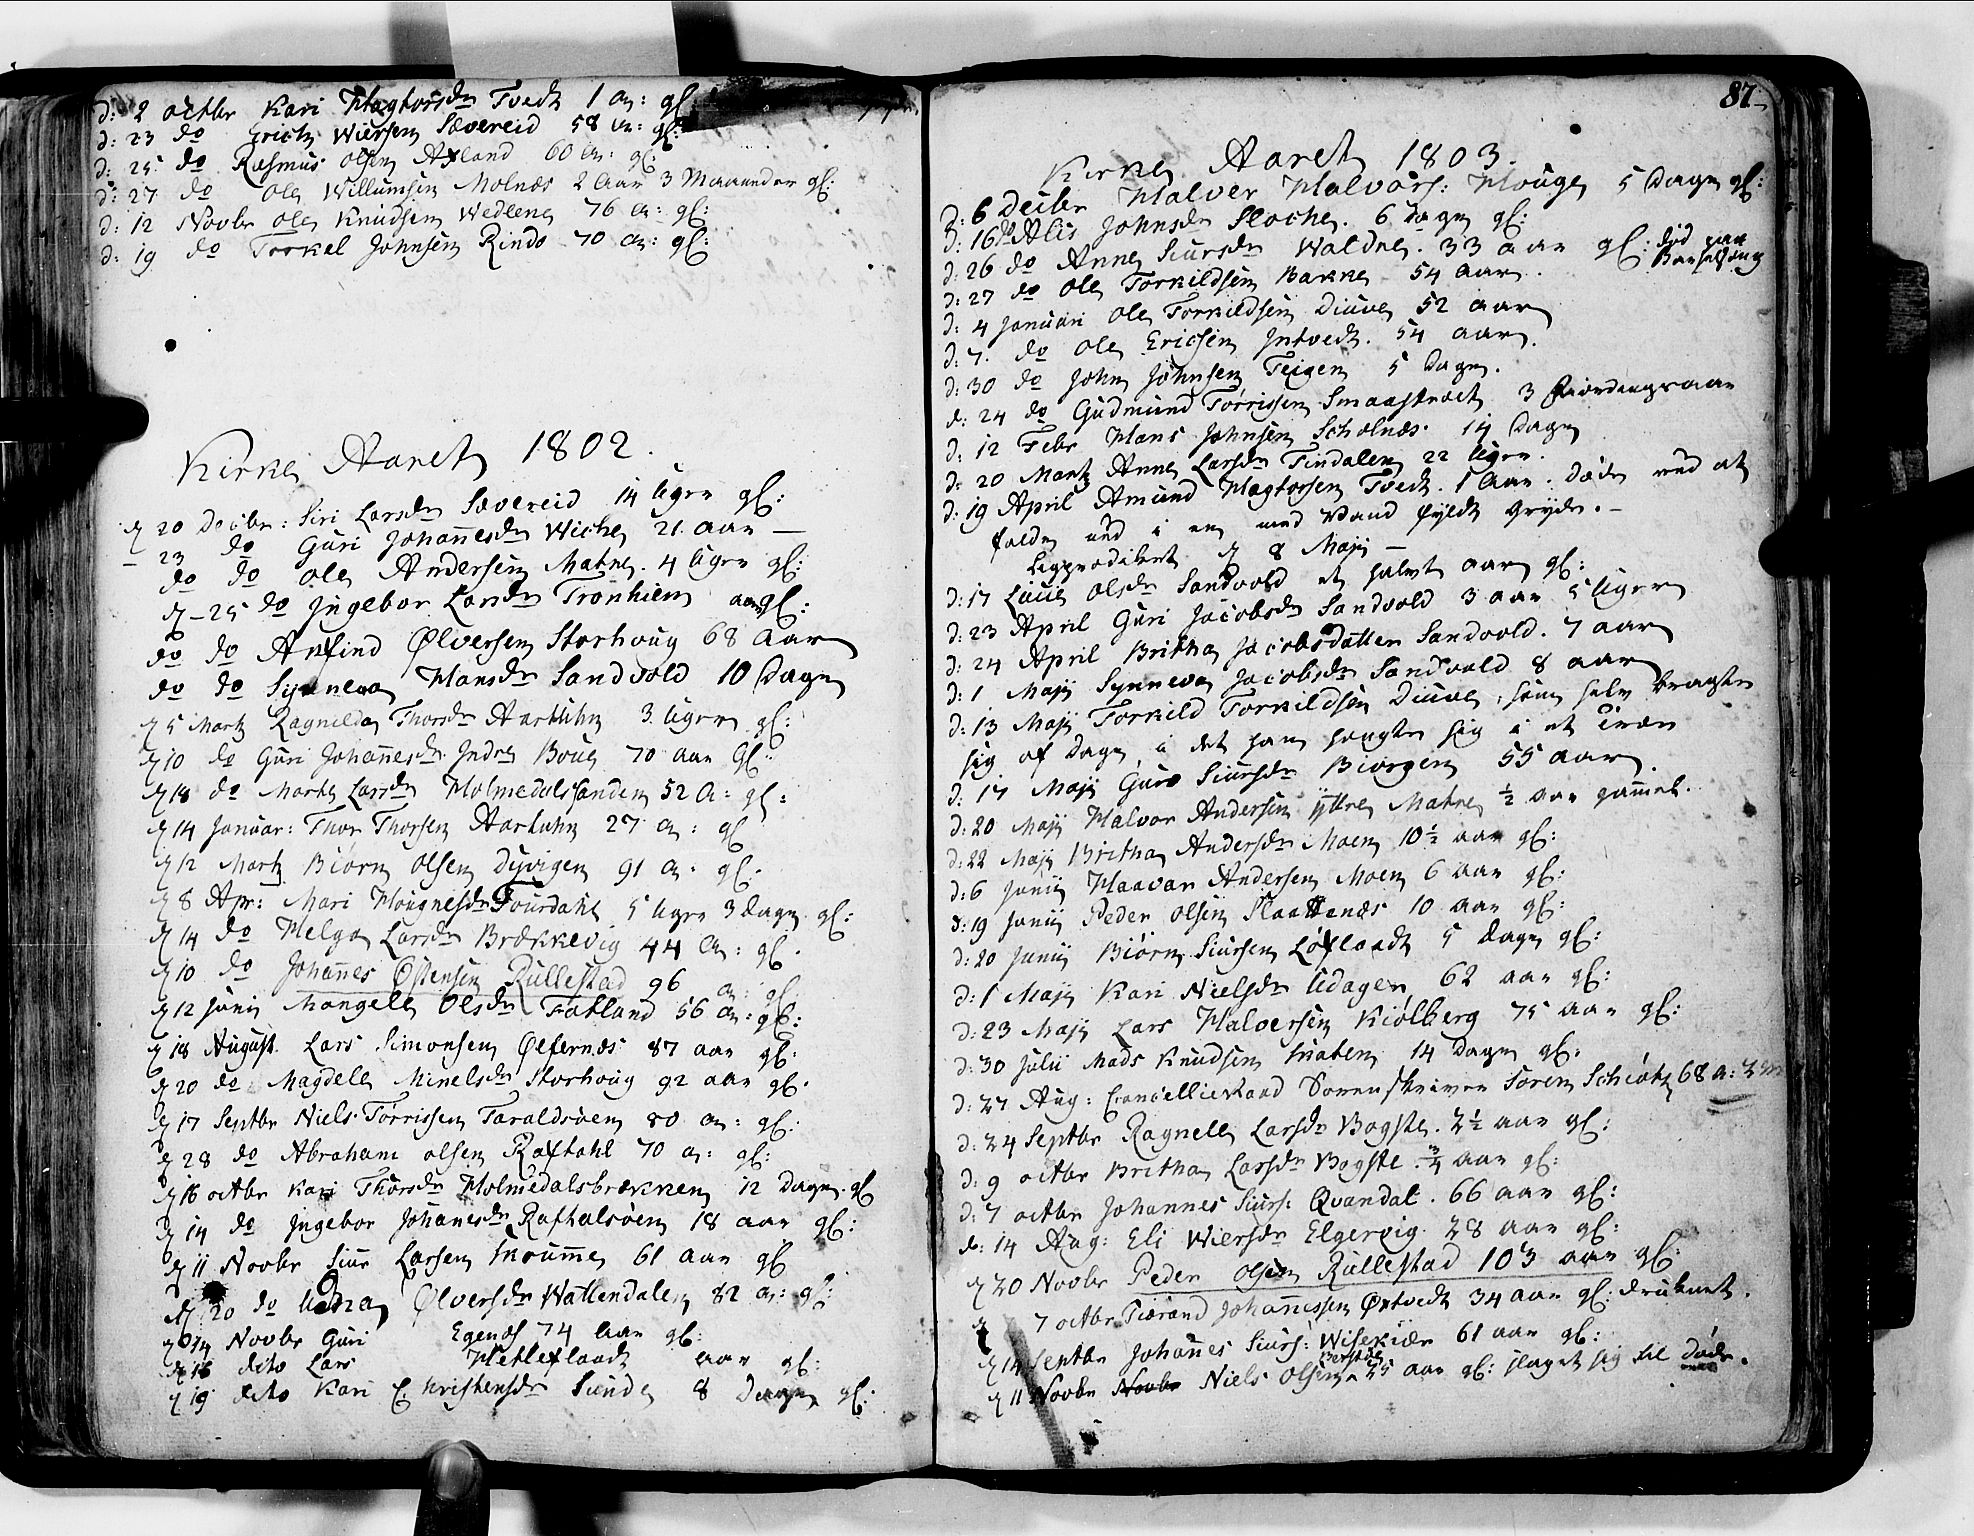 d: 2 octbr Kari Hagtorsdr Tvedt 1 a: gl:
d: 23 do Erich Wiersen Sævereid 58 a: gl:
d: 25 do Rasmus Olsen Axland 60 a: gl:
d: 27 do Ole Willumsen Molnæs 2 Aar 3 Maaneder gl:
d: 12 Novbr Ole Knudsen Wedlene 76 a: gl:
d: 19 do Torkel Johnsen Rindo 70 a: gl:
Kirke Aaret 1802.
d 20 Decbr: Siri Larsdr Sævereid 14 Uger gl:
– 23 do Guri Johannesdr Wiche 21 aar –
do do Ole Andersen Matre. 4 Uger gl:
d – 25 do Ingebor Larsdr Tronhiem aar gl:
do do Anfind Ølversen Storhoug 68 Aar
do do Synneva Hansdr Sandvold 10 Dage
d 5 Martz Ragnilda Thorsdr Aartuhn 3 Uger gl:
d 10 do Guri Johannesdr Indre Boug 70 aar gl:
d 18 do Marte Larsdr Holmedalssanden 52 a: gl:
d 14 Januar: Thor Thorsen Aartuhn 27 a: gl
d 12 Martz Biørn Olsen Dyvigen 91 a. gl.
d 8 Apr: Mari Hougnesdr Fourdahl 5 Uger 3 dage gl:
d 14 do Helga Larsdr Brekkevig 44 a: gl.
d 10 do Johannes Østensen Rullestad 96 a: gl
d 12 Junij Mangelle Olsdr Fatland 56 a: gl:
d 18 August Lars Simonsen Ølfernæs 87 aar gl:
d 20 do Magdell Minelsdr Storhoug 92 aar gl.
d 17 Septbr Niels Tørrissen Taraldsøen 80 a: gl:
d 28 do Abraham Olsen Raftahl 70 a: gl:
d 16 octbr Kari Thorsdr Holmedalsbrekken 12 Dage gl
d 14 do Ingebor Johanesdr Raftalsøen 18 aar gl:
d 11 Novbr Siur Larsen Skrumme 61 aar gl
d 20 do Udna Ølversdr Wattendalen 82 a: gl:
d 14 Novbr Guri Egenæs 74 Aar gl:
d 16 dito Lars Hetleflaadt aar gl:
d 19 dito Kari Christensdr Sunde 8 Dage gl:
87
Kirke Aaret 1803.
d: 6 Decbr Halver Halvors: Houge 5 Dage gl:
d: 16 do Alis Johnsdr Sloche. 6 Dage gl:
d: 26 do Anne Siursdr Waldre. 33 aar gl: død paa Barselseng
d: 27 do Ole Torkildsen Bakke 54 Aar.
d: 4 Januari Ole Torkildsen Diuve 52 aar
d: 7. do Ole Ericsen Intvedt. 54 aar.
d: 30 do John Johnsen Teigen 5 Dage.
d: 24 do Gudmund Tørrissen Smaastræet 3 Fiordingsaar
d: 12 Febr Hans Johnsen Scholnæs 14 Dage
d: 20 Martz Anne Larsdr Tindalen 22 Uger.
d: 19 April Amund Hagtorsen Tvedt. 1 Aar. døde ved at
falde ned i en med Vand fyldt Gryde. –
Ligprædiket d 8 Maji –
d: 17 Liuve Olsdr Sandvold et halvt aar gl:
d: 23 April Guri Jacobsdr Sandvold 3 aar 5 Uger
d: 24 April Britha Jacobsdatter Sandvold. 7 aar
d: 1 Maji Synneva Jacobsdr Sandvold 8 aar
d: 13 Maji Torkild Torkildsen Diuve, som selv bragte
sig af Dage, i det han hengte sig i et Træe
d: 17 Maji Guro Siursdr Biorgen 55 aar.
d: 20 Maji Halvor Andersen Ÿttre Matre ½ aar gammel.
d: 22 Maji Britha Andersdr Moen 10½ aar gl:
d: 6 Junij Haavar Andersen Moen 6 aar gl:
d: 19 Junij Peder Olsen Slaattenæs 10 aar gl:
d: 20 Junij Biørn Siursen Løfland 5 dage gl:
d: 1 Maji Kari Nielsdr Udager 62 aar gl:
d: 23 Maji Lars Halversen Kiolberg 75 aar gl:
d: 30 Julij Mads Knudsen Snaten 14 Dage gl:
d: 27 Aug: Cancellieraad Sorenskriver Søren Schiøtz 68 a: 2 m
d: 24 Septbr Ragnelle Larsdr Bogste. 2½ aar gl:
d: 9 octbr Britha Larsdr Bogste. ¾ aar gl:
d: 7 octbr Johannes Siurs: Qvandal. 66 aar gl:
d: 14 Aug: Eli Wiersdr Elgervig. 28 aar gl:
d 20 Novbr Peder Olsen Rullestad 103 aar gl:
d 7 octbr Tiærand Johannessen Øxtvedt 34 aar gl: druknet.
d 14 Septbr Johannes Siurs: Wisekiær 61 aar gl:
d 11 Novbr Novbr Niels Olsen Berstøe 25 aar gl: slaget sig til Døde.